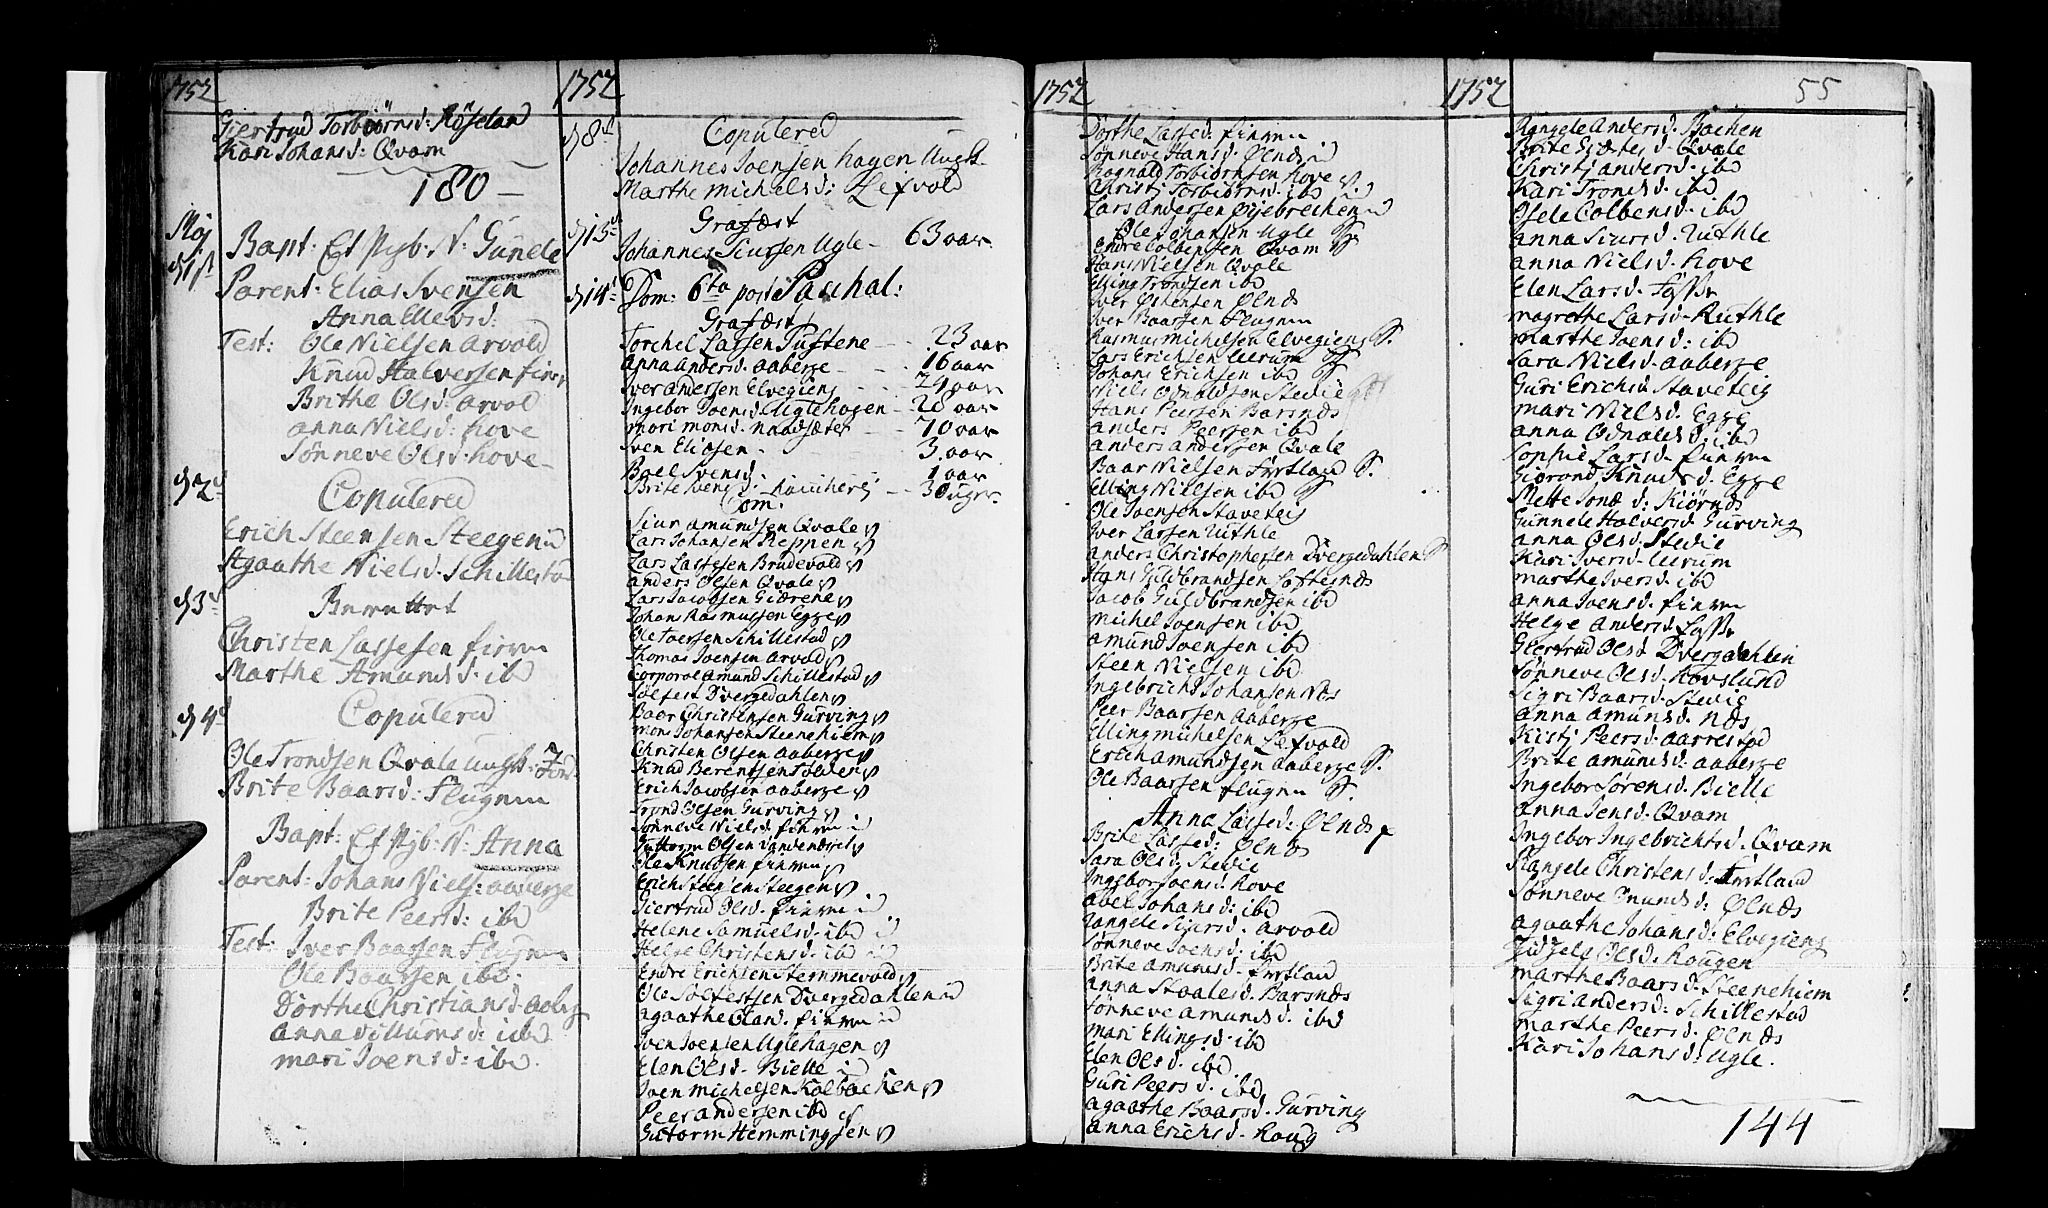 1752
Giertrud Torbiörnsd: Röseland
Kari Johansd: Qvam
180 –
Maj
d 1st
Bapt: Et N: Gunele
Parent: Elias Svensen
Anna Ellevsd:
Test: Ole Nielsen Arvold
Knud Halversen
Brithe Olsd: Arvol
Anna Nielsd: Hove
Sönneve Olsd: Hove
d 2d
Copulered
Erich Steensen Steegen
Agaathe Nielsd: Schillestad
d 3d
Christen Lassesen
Marthe Amundsd: ibd
d 4d
Copulered
Ole Trondsen Qvale
Brite Baarsd: Flugem
Bapt: Et N: Anna
Parent: Johans Niels: Aaberge
Brite Peersd: ibd
Test: Iver Baarsen Flugem
Ole Baarsen ibd.
Dorthe Christiansd: Aaberg
Anna Villumsd: ibd
Mari Joensd: ibd.
1752
d 8d
Copulered
Johannes Joensen Hagen Ungk.
Marthe Michelsd: Lefvold
d 13d
Grafæst
Johannes Siursen Ugle – 63 aar
d 14d
Dom: 6ta post Paschal:
Grafæst
Torchel Larsen Tuftene – 23 aar
Anna Andersd. Aaberge – 16 aar
Iver Andersen Elvegiens – 24 aar
Ingebor Joensd. Uglehagen – 28 aar
Mari Monsd. Naadsæter – 70 aar
Sven Eliasen – 3. aar
Boel Svensd. – 1 aar
Brite Svensd. – 30 uger.
Com.
Siur Amundsen Qvale
Lars Johansen Reppen
Lars Lassesen Brudevold
Anders Olsen Qvale
Lars Jacobsen Giærene
Johans Rasmussen Egge
Ole Schillestad
Thomas Joensen Arvold
Corporal Amund Schillestad
Solfest Dvergedahlen
Baar Christensen Gurving
Mons Johansen Steenehiem
Christen Olsen Aaberge
Knud Berentsen
Erich Jacobsen Aaberge
Trond Olsen Gurving
Sönneve Nielsd.
Guttorm Olsen
Ole Knudsen
Erich Steensen Steegen
Giertrud Olsd.
Helene Samuelsd. ibd
Helge Christensd. ibd
Endre Erichsen Stemmevold
Ole Solfestsen Dvergedahlen
Agaathe Olasd.
Sven Joensen Uglehagen
Elen Olsd. Bielle
Sven Michelsen Kalbachen
Peer Andersen ibd
Gutorm Hemmingsen
1752
Dorthe Lassed:
Sönneve Hansd. Ølnæs
Rognald Torbiörnsen Hove
Christj Torbiörnsd. ibd
Lars Andersen Öyjebrechen
Ole Johansen Ugle
Endre Colbensen Qvam
Hans Nielsen Qvale
Elling Trondsen ibd
Iver Østensen Ølnæs
Iver Baarsen Flugem
Rasmus Michelsen Elvegiens
Lars Erichsen Uerum
Johans Erichsen ibd
Niels Odnaldsen Stedie
Hans Peersen Barsnæs
Anders Peersen ibd
Anders Andersen Qvale
Baar Nielsen Firtland
Elling Nielsen ibd
Ole Joensen Staveteig
Iver Larsen Ruthle
Anders Christophersen Dvergedahlen
Hans Guldbrandsen Loftesnæs
Jacob Guldbrandsen ibd
Michel Joensen ibd
Amund Joensen ibd
Steen Nielsen ibd
Ingebricht Johansen Næs
Peer Baarsen Aaberge
Elling Michelsen Lefvold
Erich Amundsen Aaberge
Ole Baarsen Flugem
Anna Lassed: Ølnæs
Brite Lassed: Ølnæs
Sara Olsd. Stedie
Ingebor Joensd. Hove
Abel Johansd: ibd
Rangele Siursd. Arvold
Sönneve Joensd: ibd
Brite Amunsd. Firtland
Anna Staalesd. Barsnæs
Sönneve Amunsd. ibd
Mari Ellingsd. ibd
Elen Olsd. ibd
Guri Peersd. ibd
Agaathe Baarsd. Gurving
Anna Erichsd. Houg
1752
55
Rangele Andersd. Bachen
Brite Qvale
Christj Andersd. ibd
Kari Tronsd. ibd
Osele Colbensd. ibd
Anna Siursd. Ruthle
Anna Nielsd. Hove
Elen Larsd.
Magrethe Larsd. Ruthle
Marthe Joensd: ibd
Sara Nielsd. Aaberge
Guri Erichsd. Staveteig
Mari Nielsd. Egge
Anna Odnalsd. ibd
Sophie Larsd.
Giörond Knudsd. Egge
Mette Jonæ d: Kiörnæs
Gunnele Halversd. Gurving
Anna Olsd. Stedie
Kari Iversd. Uerum
Marthe Iversd. ibd
Anna Joensd.
Helge Andersd.
Giertrud Olsd Dvergedahlen
Sönneve Olsd. Hovslund
Sigri Baarsd. Stedie
Anna Amunsd. Næs
Kistj Peersd. Aarrestad
Brite Amunsd: Aaberge
Ingebor Sörensd. Bielle
Anna Jensd. Qvam
Ingebor Ingebrichtsd. Qvam
Rangele Christensd: Firtland
Sönneve Ølnæs
Agaathe Johansd: Elvegiens
Zidzele Olsd. Hougen
Marthe Baarsd: Steenehiem
Sigri Andersd: Schillestad
Marthe Peersd. Ølnæs
Kari Johansd: Ugle.
144